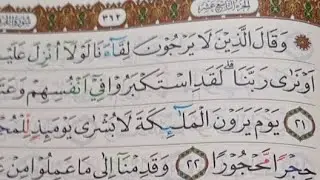 الجزء التاسع عشر ٣٦٢
وَقَالَ الَّذِينَ لَا يَرْجُونَ لِقَاءَنَا لَوْلَا أُنْزِلَ عَلَيْنَا
أَوْ نَرَىٰ رَبَّنَا لَقَدِ اسْتَكْبَرُوا فِي أَنْفُسِهِمْ وَعَتَوْ
٢١ يَوْمَ يَرَوْنَ الْمَلَٰئِكَةَ لَا بُشْرَىٰ يَوْمَئِذٍ لِلْمُجْ
حِجْرًا مَحْجُورًا ٢٢ وَقَدِمْنَا إِلَىٰ مَا عَمِلُوا مِنْ